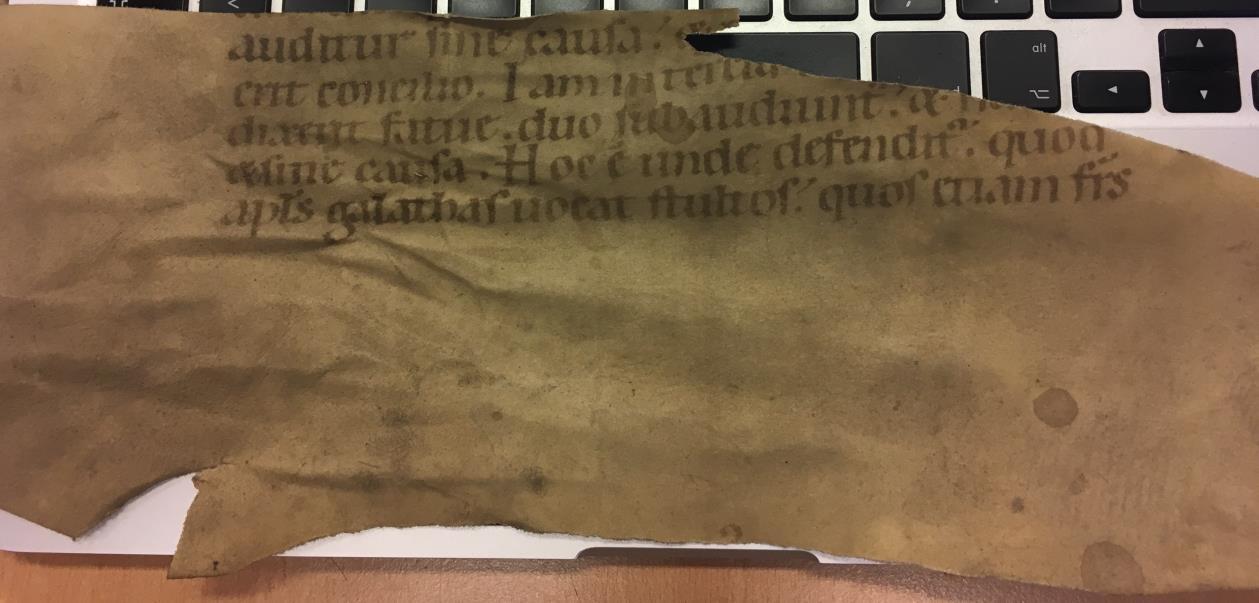 auditur sine causa.
erit concilio. Iam in tercia
dixerit fatue. duo subaudiunt᷑. &
& sine causa. Hoc ē unde defendit᷑. quod
apl̄s galathas uocat stultos. quos etiam fr̄s
alt